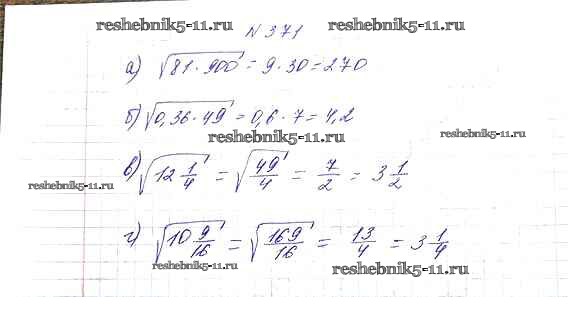 reshebnik5-11.ru N 371 reshebnik5-11.ru
а) √81·900 = 9·30 = 270
б) √0,36·49 = 0,6·7 = 4,2
reshebnik5-11.ru
в) √12 1/4 = √49/4 = 7/2 = 3 1/2
reshebnik5-11.ru
г) √10 9/16 = √169/16 = 13/4 = 3 1/4
reshebnik5-11.ru reshebnik5-11.ru